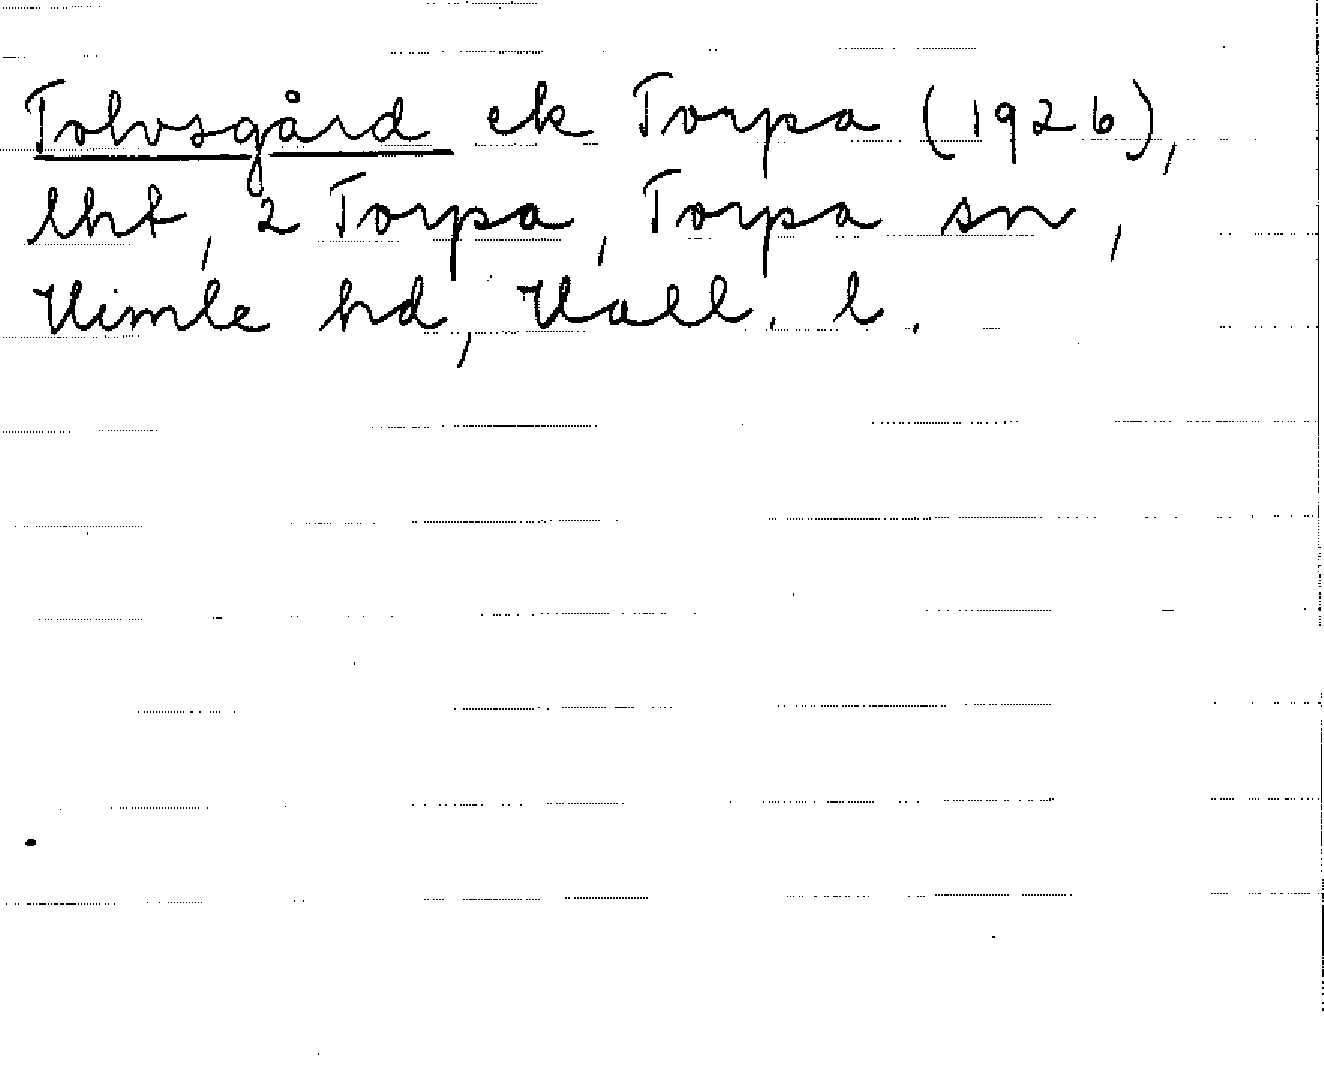 Tolvsgård ek Torpa (1926),
lht, 2 Torpa, Torpa sn,
Himle hd, Hall. l.